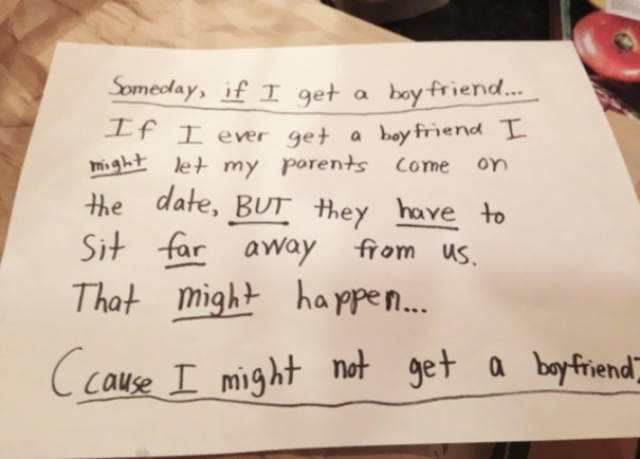 Someday, if I get a boyfriend...
If I ever get a boyfriend I
might let my parents come on
the date, BUT they have to
Sit far away from us.
That might happen...
(cause I might not get a boyfriend)